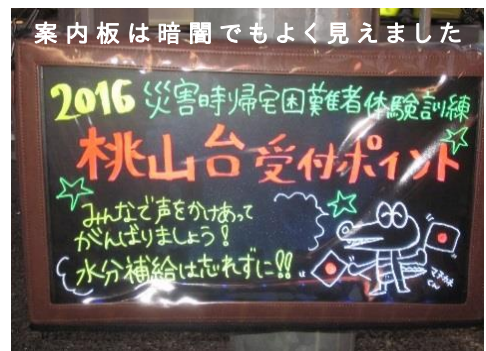 案内板は暗闇でもよく見えました
2016 災害時帰宅困難者体験訓練
桃山台受付ポイント
みんなで声をかけあって
がんばりましょう!
水分補給は忘れずに!!